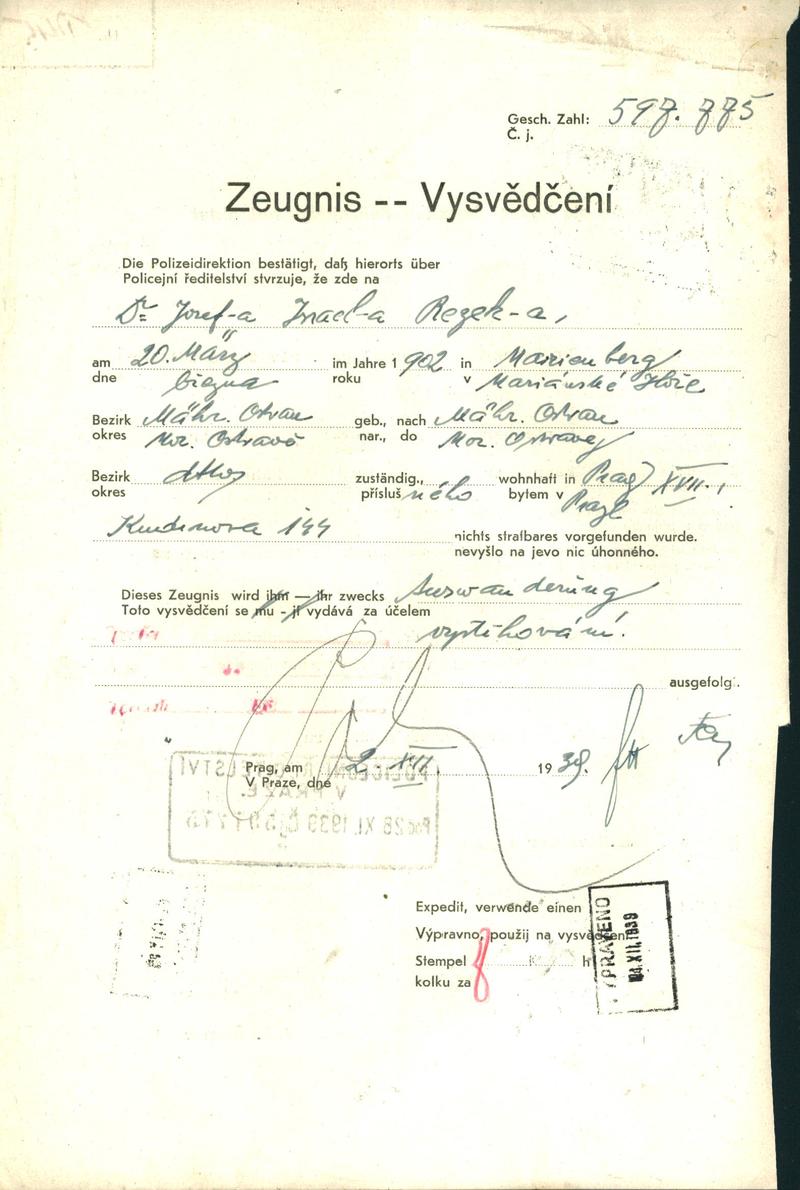 Gesch. Zahl: 597.775
Č. j.
Zeugnis -- Vysvědčení
Die Polizeidirektion bestätigt, daß hierorts über
Policejní ředitelství stvrzuje, že zde na
Dr Josef-a Israel-a Rezek-a,
am 20. März im Jahre 1902 in Marienberg
dne března roku v Mariánské Hoře
Bezirk Mähr. Ostrau geb., nach Mähr. Ostrau
okres Mor. Ostravě nar., do Mor. Ostravy
Bezirk dtto zuständig., wohnhaft in Prag XVII.,
okres příslušného bytem v Praze
144 nichts strafbares vorgefunden wurde.
nevyšlo na jevo nic úhonného.
Dieses Zeugnis wird ihm — ihr zwecks Auswanderung
Toto vysvědčení se mu - jí vydává za účelem
vystěhování.
ausgefolgt.
Prag, am 2. XII. 1939.
V Praze, dne
POLICEJNÍ ŘEDITELSTVÍ
V PRAZE.
Expedit, verwende einen
Výpravno, použij na vysvědčení
Stempel h
kolku za 8
VYPRAVENO
XII. 1939